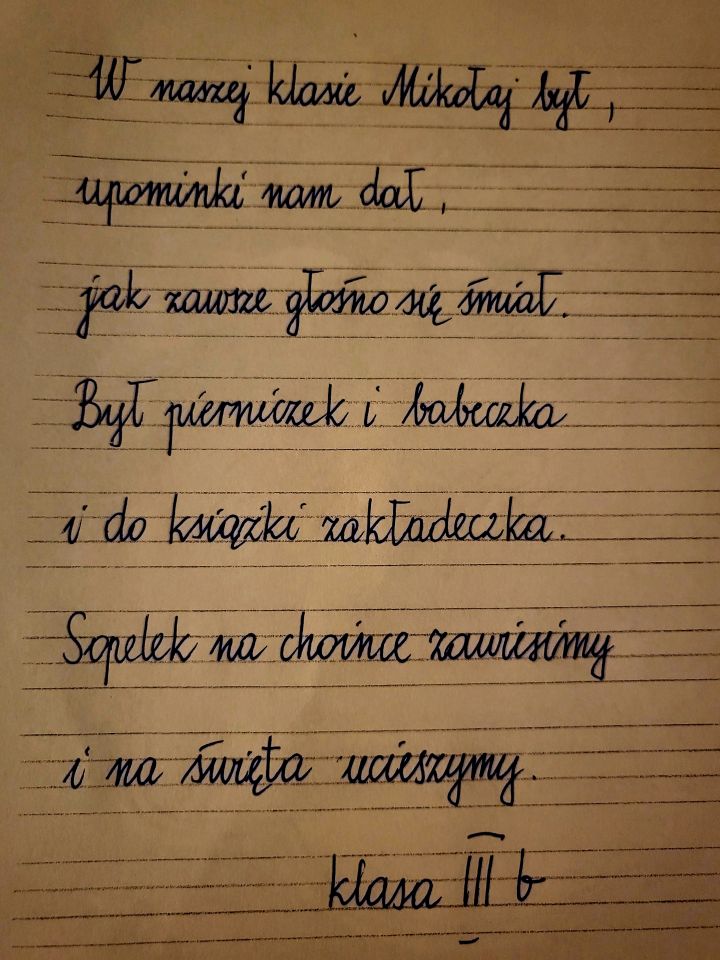 W naszej klasie Mikołaj był,
upominki nam dał,
jak zawsze głośno się śmiał.
Był pierniczek i babeczka
i do książki zakładeczka.
Sopelek na choince zawisimy
i na święta ucieszymy.
klasa III b